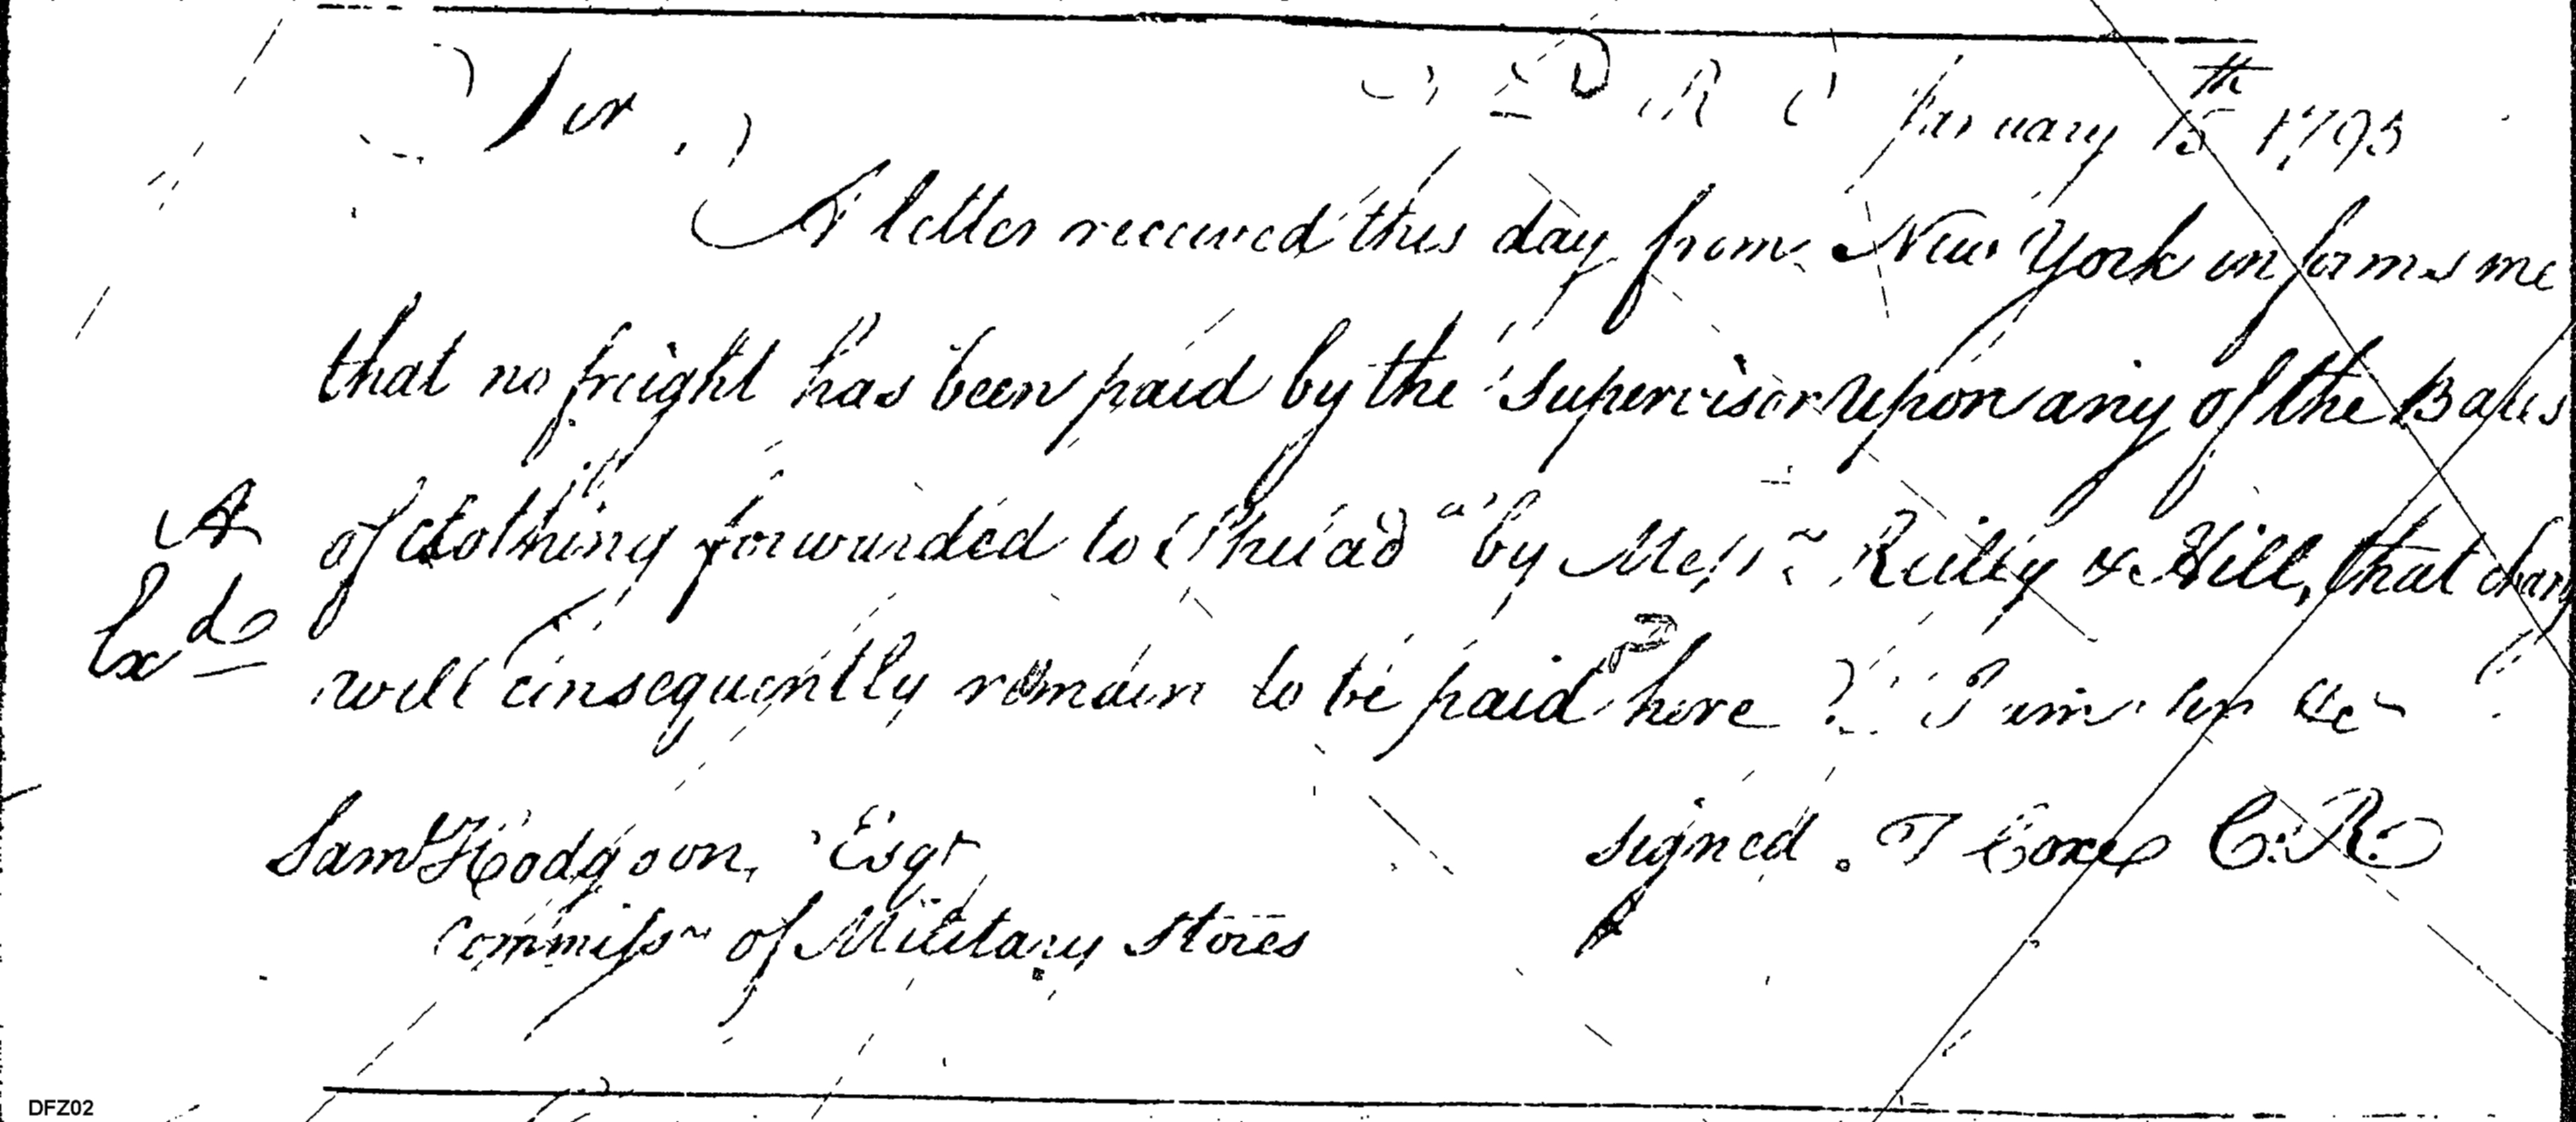 Sir, T D R O January 15th 1795
A letter received this day from New York informs me
that no freight has been paid by the Supervisor upon any of the Bales
A of clothing forwarded to Philada by Messrs Reilly & Hill, that charg
Exd will consequently remain to be paid here. I am Sir &c
Saml Hodgson, Esqr signed. T Coxe C:R:
Commissr of Military Stores
DFZ02